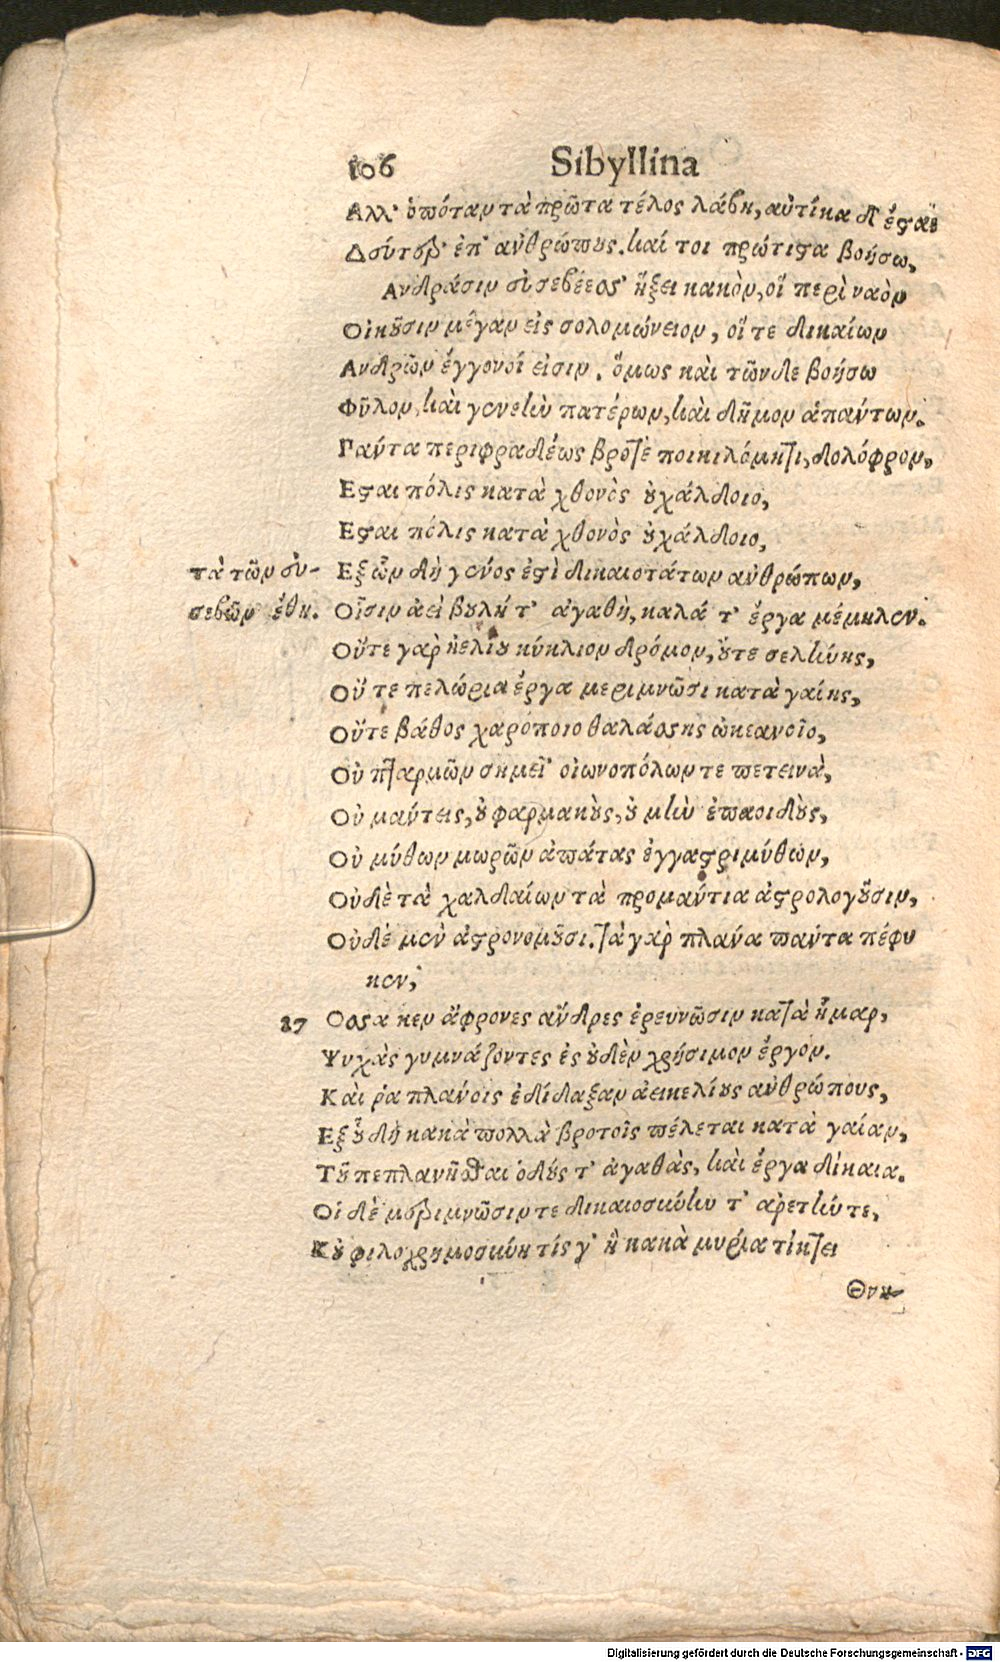 106 Sibyllina
Αλλ' ὁπόταν τὰ πρῶτα τέλος λάβη, αὐτίκα δ' ἔσται
Δεύτερ' ἐπ' ἀνθρώπους. καί τοι πρώτιστα βοήσω,
Ανδράσιν εὐσεβέεσσ' ἥξει κακὸν, οἳ περὶ ναὸν
Οἰκοῦσιν μέγαν εἰς σολομώνειον, οἵ τε δικαίων
Ανδρῶν ἔγγονοί εἰσιν. ὅμως καὶ τῶνδε βοήσω
Φῦλον, καὶ γενεὴν πατέρων, καὶ δῆμον ἁπάντων.
Γάντα περιφραδέως βροτὲ ποικιλόμητι, δολόφρον,
Εσται πόλις κατὰ χθονὸς οὐχάλδοιο,
Εσται πόλις κατὰ χθονὸς οὐχάλδοιο,
τὰ τῶν εὐ- Εξ ὧν δὴ γένος ἐστὶ δικαιοτάτων ἀνθρώπων,
σεβῶν ἔθη. Οἷσιν ἀεὶ βουλή τ' ἀγαθὴ, καλά τ' ἔργα μέμηλεν.
Οὔτε γὰρ ἠελίου κύκλιον δρόμον, οὔτε σελήνης,
Οὔ τε πελώρια ἔργα μεριμνῶσι κατὰ γαίης,
Οὔτε βάθος χαρόποιο θαλάσσης ὠκεανοῖο,
Οὐ πταρμῶν σημεῖ' οἰωνοπόλων τε πετεινὰ,
Οὐ μάντεις, οὐ φαρμακοὺς, οὐ μὴν ἐπαοιδοὺς,
Οὐ μύθων μωρῶν ἀπάτας ἐγγαστριμύθων,
Οὐδὲ τὰ χαλδαίων τὰ προμάντια ἀστρολογοῦσιν,
Οὐδὲ μὲν ἀστρονομοῦσι. τὰ γὰρ πλάνα πάντα πέφυ
κεν,
27 Οσσα κεν ἄφρονες ἄνδρες ἐρευνῶσιν κατὰ ἦμαρ,
Ψυχὰς γυμνάζοντες ἐς οὐδὲν χρήσιμον ἔργον.
Καὶ ῥα πλάνοις ἐδίδαξαν ἀεικελίους ἀνθρώπους,
Εξ οὗ δὴ κακὰ πολλὰ βροτοῖς πέλεται κατὰ γαίαν,
Τοῦ πεπλανῆσθαι ὁδούς τ' ἀγαθὰς, καὶ ἔργα δίκαια.
Οἱ δὲ μεριμνῶσιν τε δικαιοσύνην τ' ἀρετήν τε,
Κοὐ φιλοχρημοσύνη τίς γ' ἢ κακὰ μυρία τίκτει
Θνη-
Digitalisierung gefördert durch die Deutsche Forschungsgemeinschaft - DFG